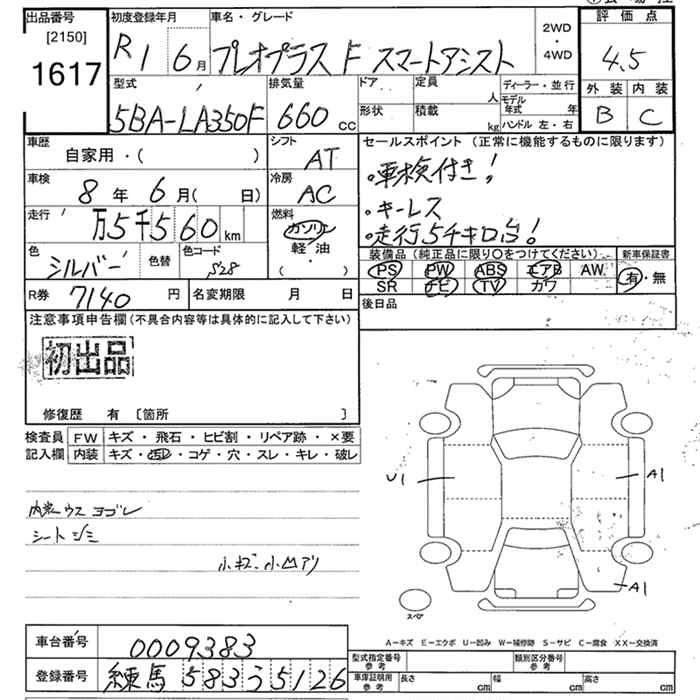 出品番号
[2150]
1617
初度登録年月
R1 6月
車名・グレード
プレオプラス F スマートアシスト
2WD
・
4WD
評価点
4.5
外装 内装
B C
型式
5BA-LA350F
排気量
660 cc
ドア
形状
定員
人
積載
kg
ディーラー・並行
モデル年式 年
ハンドル 左・右
車歴
自家用・( )
シフト
AT
車検
8年 6月( 日)
冷房
AC
走行
万5千560km
燃料
ガソリン
軽・油
・
( )
色
シルバー
色替
色コード
S28
R券
7140 円
名変期限 月 日
セールスポイント(正常に機能するものに限ります)
・車検付き!
・キーレス
・走行5千キロ台!
装備品(純正品に限り○をつけてください)
PS PW ABS エアB AW
SR ナビ TV カワ
新車保証書
有・無
後日品
注意事項申告欄(不具合内容等は具体的に記入して下さい)
初出品
修復歴 有〔箇所 〕
検査員
記入欄
FW キズ・飛石・ヒビ割・リペア跡・×要
内装 キズ・汚れ・コゲ・穴・スレ・キレ・破レ
内装ウス ヨゴレ
シートシミ
小キズ小凹アリ
U1
A1
A1
スペア
A-キズ E-エクボ U-凹み W-補修跡 S-サビ C-腐食 XX-交換済
車台番号
0009383
登録番号
練馬 583 う 5126
型式指定番号
参考
類別区分番号
参考
車庫証明用
参考
長さ cm
幅 cm
高さ cm